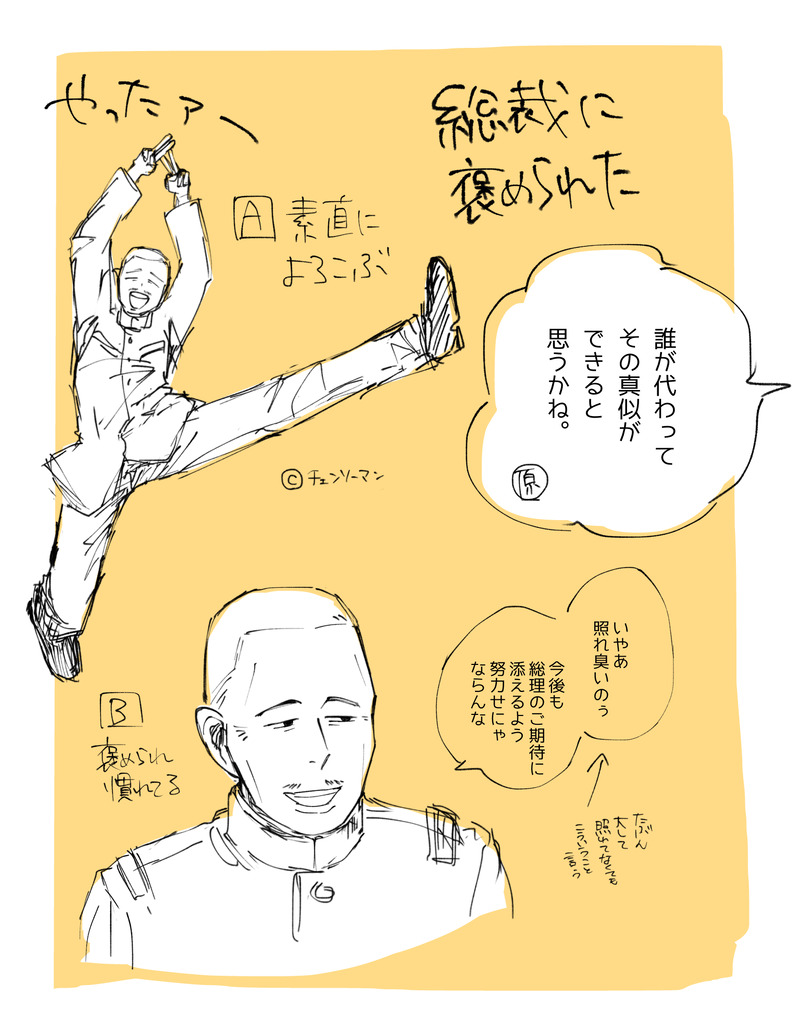 総裁に
褒められた
やったァー
A 素直に
よろこぶ
誰が代わって
その真似が
できると
思うかね。
原
©チェンソーマン
B
褒められ
慣れてる
いやあ
照れ臭いのぅ
今後も
総理のご期待に
添えるよう
努力せにゃ
ならんな
たぶん
大して
照れてなくても
こういうこと
言う